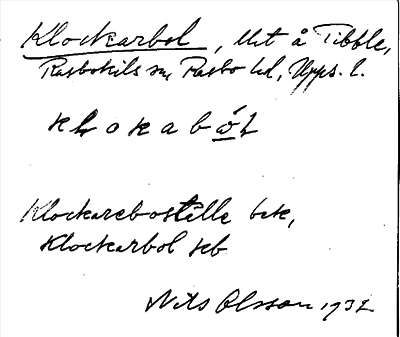 Klockarbol, Ut å Tibble,
Rasbokils sn, Rasbo hd, Upps. l.
klokaból
Klockareboställe bek,
Klockarbol seb
Nils Olsson 1932